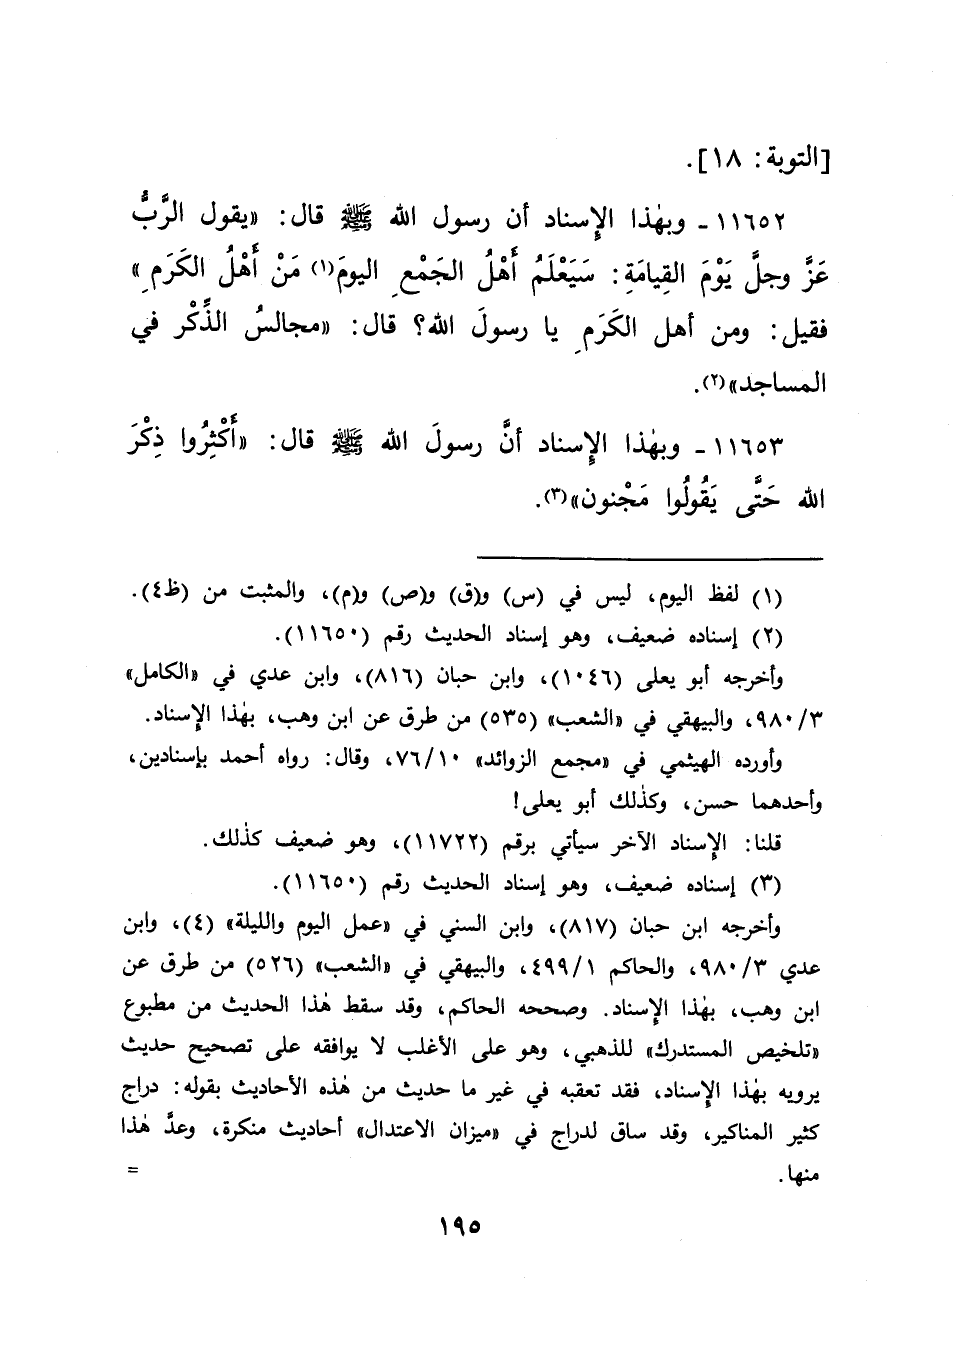 [التوبة: ١٨].
١١٦٥٢ - وبهٰذا الإسناد أن رسول الله ﷺ قال: «يقول الرَّبُّ
عَزَّ وجلَّ يَوْمَ القِيامَةِ: سَيَعْلَمُ أَهْلُ الجَمْعِ اليومَ(١) مَنْ أَهْلُ الكَرَمِ»
فقيل: ومن أهل الكَرَمِ يا رسولَ الله؟ قال: «مجالسُ الذِّكْر في
المساجد»(٢).
١١٦٥٣ - وبهٰذا الإسناد أنَّ رسولَ الله ﷺ قال: «أَكْثِرُوا ذِكْرَ
الله حَتَّى يَقُولُوا مَجْنون»(٣).
(١) لفظ اليوم، ليس في (س) و(ق) و(ص) و(م)، والمثبت من (ظ٤).
(٢) إسناده ضعيف، وهو إسناد الحديث رقم (١١٦٥٠).
وأخرجه أبو يعلى (١٠٤٦)، وابن حبان (٨١٦)، وابن عدي في «الكامل»
٩٨٠/٣، والبيهقي في «الشعب» (٥٣٥) من طرق عن ابن وهب، بهٰذا الإسناد.
وأورده الهيثمي في «مجمع الزوائد» ٧٦/١٠، وقال: رواه أحمد بإسنادين،
وأحدهما حسن، وكذٰلك أبو يعلى!
قلنا: الإسناد الآخر سيأتي برقم (١١٧٢٢)، وهو ضعيف كذٰلك.
(٣) إسناده ضعيف، وهو إسناد الحديث رقم (١١٦٥٠).
وأخرجه ابن حبان (٨١٧)، وابن السني في «عمل اليوم والليلة» (٤)، وابن
عدي ٩٨٠/٣، والحاكم ٤٩٩/١، والبيهقي في «الشعب» (٥٢٦) من طرق عن
ابن وهب، بهٰذا الإسناد. وصححه الحاكم، وقد سقط هٰذا الحديث من مطبوع
«تلخيص المستدرك» للذهبي، وهو على الأغلب لا يوافقه على تصحيح حديث
يرويه بهٰذا الإسناد، فقد تعقبه في غير ما حديث من هٰذه الأحاديث بقوله: دراج
كثير المناكير، وقد ساق لدراج في «ميزان الاعتدال» أحاديث منكرة، وعدَّ هٰذا
منها. =
١٩٥